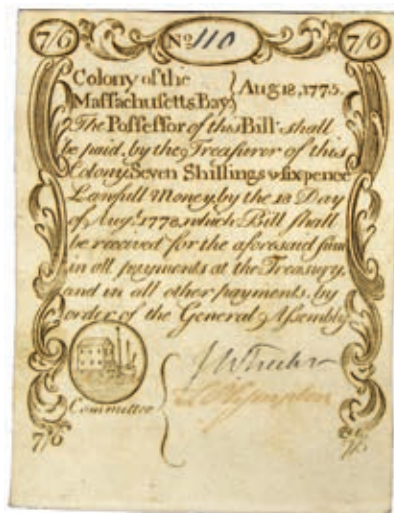 7/6 No 110 7/6
Colony of the
Massachusetts Bay } Aug 18, 1775.
The Possessor of this Bill shall
be paid, by the Treasurer of this
Colony, Seven Shillings & sixpence
Lawfull Money, by the 18 Day
of Augt. 1778, which Bill shall
be received for the aforesaid sum
in all payments at the Treasury,
and in all other payments, by
order of the General Assembly
Committee
7/6